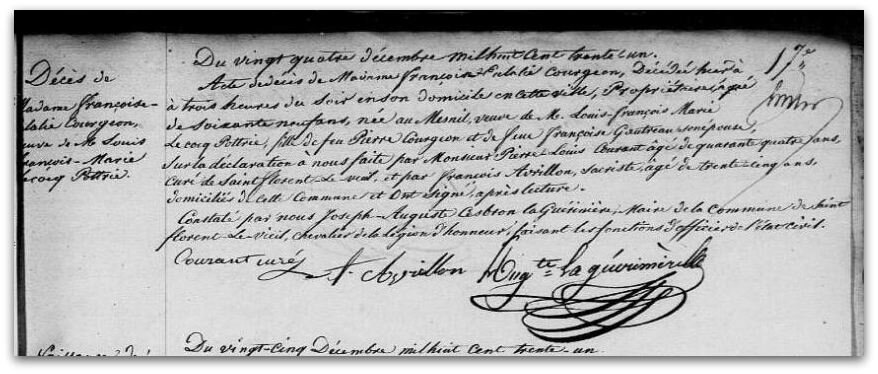 Du vingt quatre décembre mil huit cent trente-un.
Décès de
Madame Françoise-
lalie Courgeon,
uve de Mr Louis
rançois-Marie
ecocq Pottrie.
Acte de décès de Madame Françoise-Eulalie Courgeon, Décédée hier à
à trois heures du soir en son domicile en cette ville, Propriétaire, agé
de soixante neuf ans, née au Mesnil, veuve de M. Louis-François Marie
Lecocq Pottrie, fille de feu Pierre Courgeon et de feue Françoise Gautreau son épouse,
Sur la déclaration a nous faite par Monsieur Pierre Louis Courant âgé de quarante quatre ans,
curé de Saint florent Le vieil, et par François Avrillon, sacriste, âgé de trente-cinq ans
domiciliés de cette Commune et Ont signé, après lecture.
Constaté par nous Joseph-Auguste Cesbron la Guérinière, Maire de la Commune de Saint
florent Le Vieil, chevalier de la légion d'honneur, faisant les fonctions d'officier de l'état civil.
17e
Courant curé
f. Avrillon
Augte la guérinière
Du vingt-cinq Décembre mil huit cent trente-un.